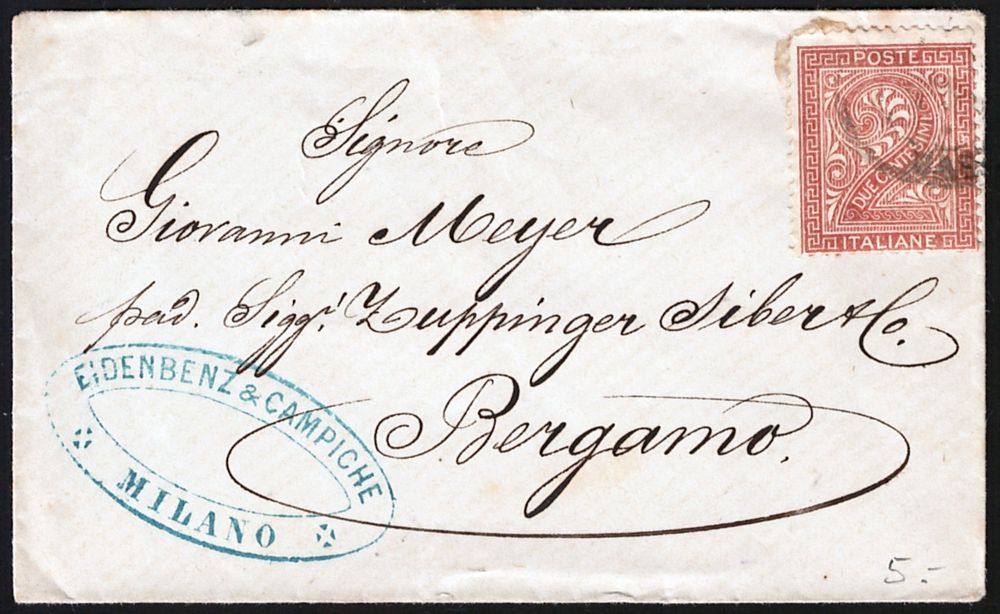 POSTE
DUE CENTESIMI
2
ITALIANE
Signore
Giovanni Meyer
pad. Sigg.ri Zuppinger Siber & Co.
Bergamo.
EIDENBENZ & CAMPICHE
MILANO
5.-